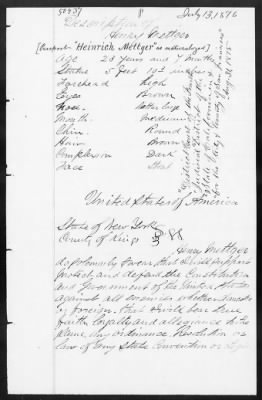 50937
8
July 13, 1876
Description of
Henry Mettger
[Passport "Heinrich Mettger" as naturalized]
Age 28 Years and 7 Months
Stature 5 Feet 10 inches
Forehead High
Eyes Brown
Nose Rather large
Mouth Medium
Chin Round
Hair Brown
Complexion Dark
Face Oval
District Court of the
Judicial District of the
State of California
for the City & County of San Francisco
United States of America
State of New York
County of Kings SS
Henry Mettger
do solemnly swear that I will support
protect and defend the Constitution
and Government of the United States
against all enemies whether domestic
or foreign, that I will bear true
faith loyalty and allegiance to the
same any ordinance Resolution or
law of any State Convention or